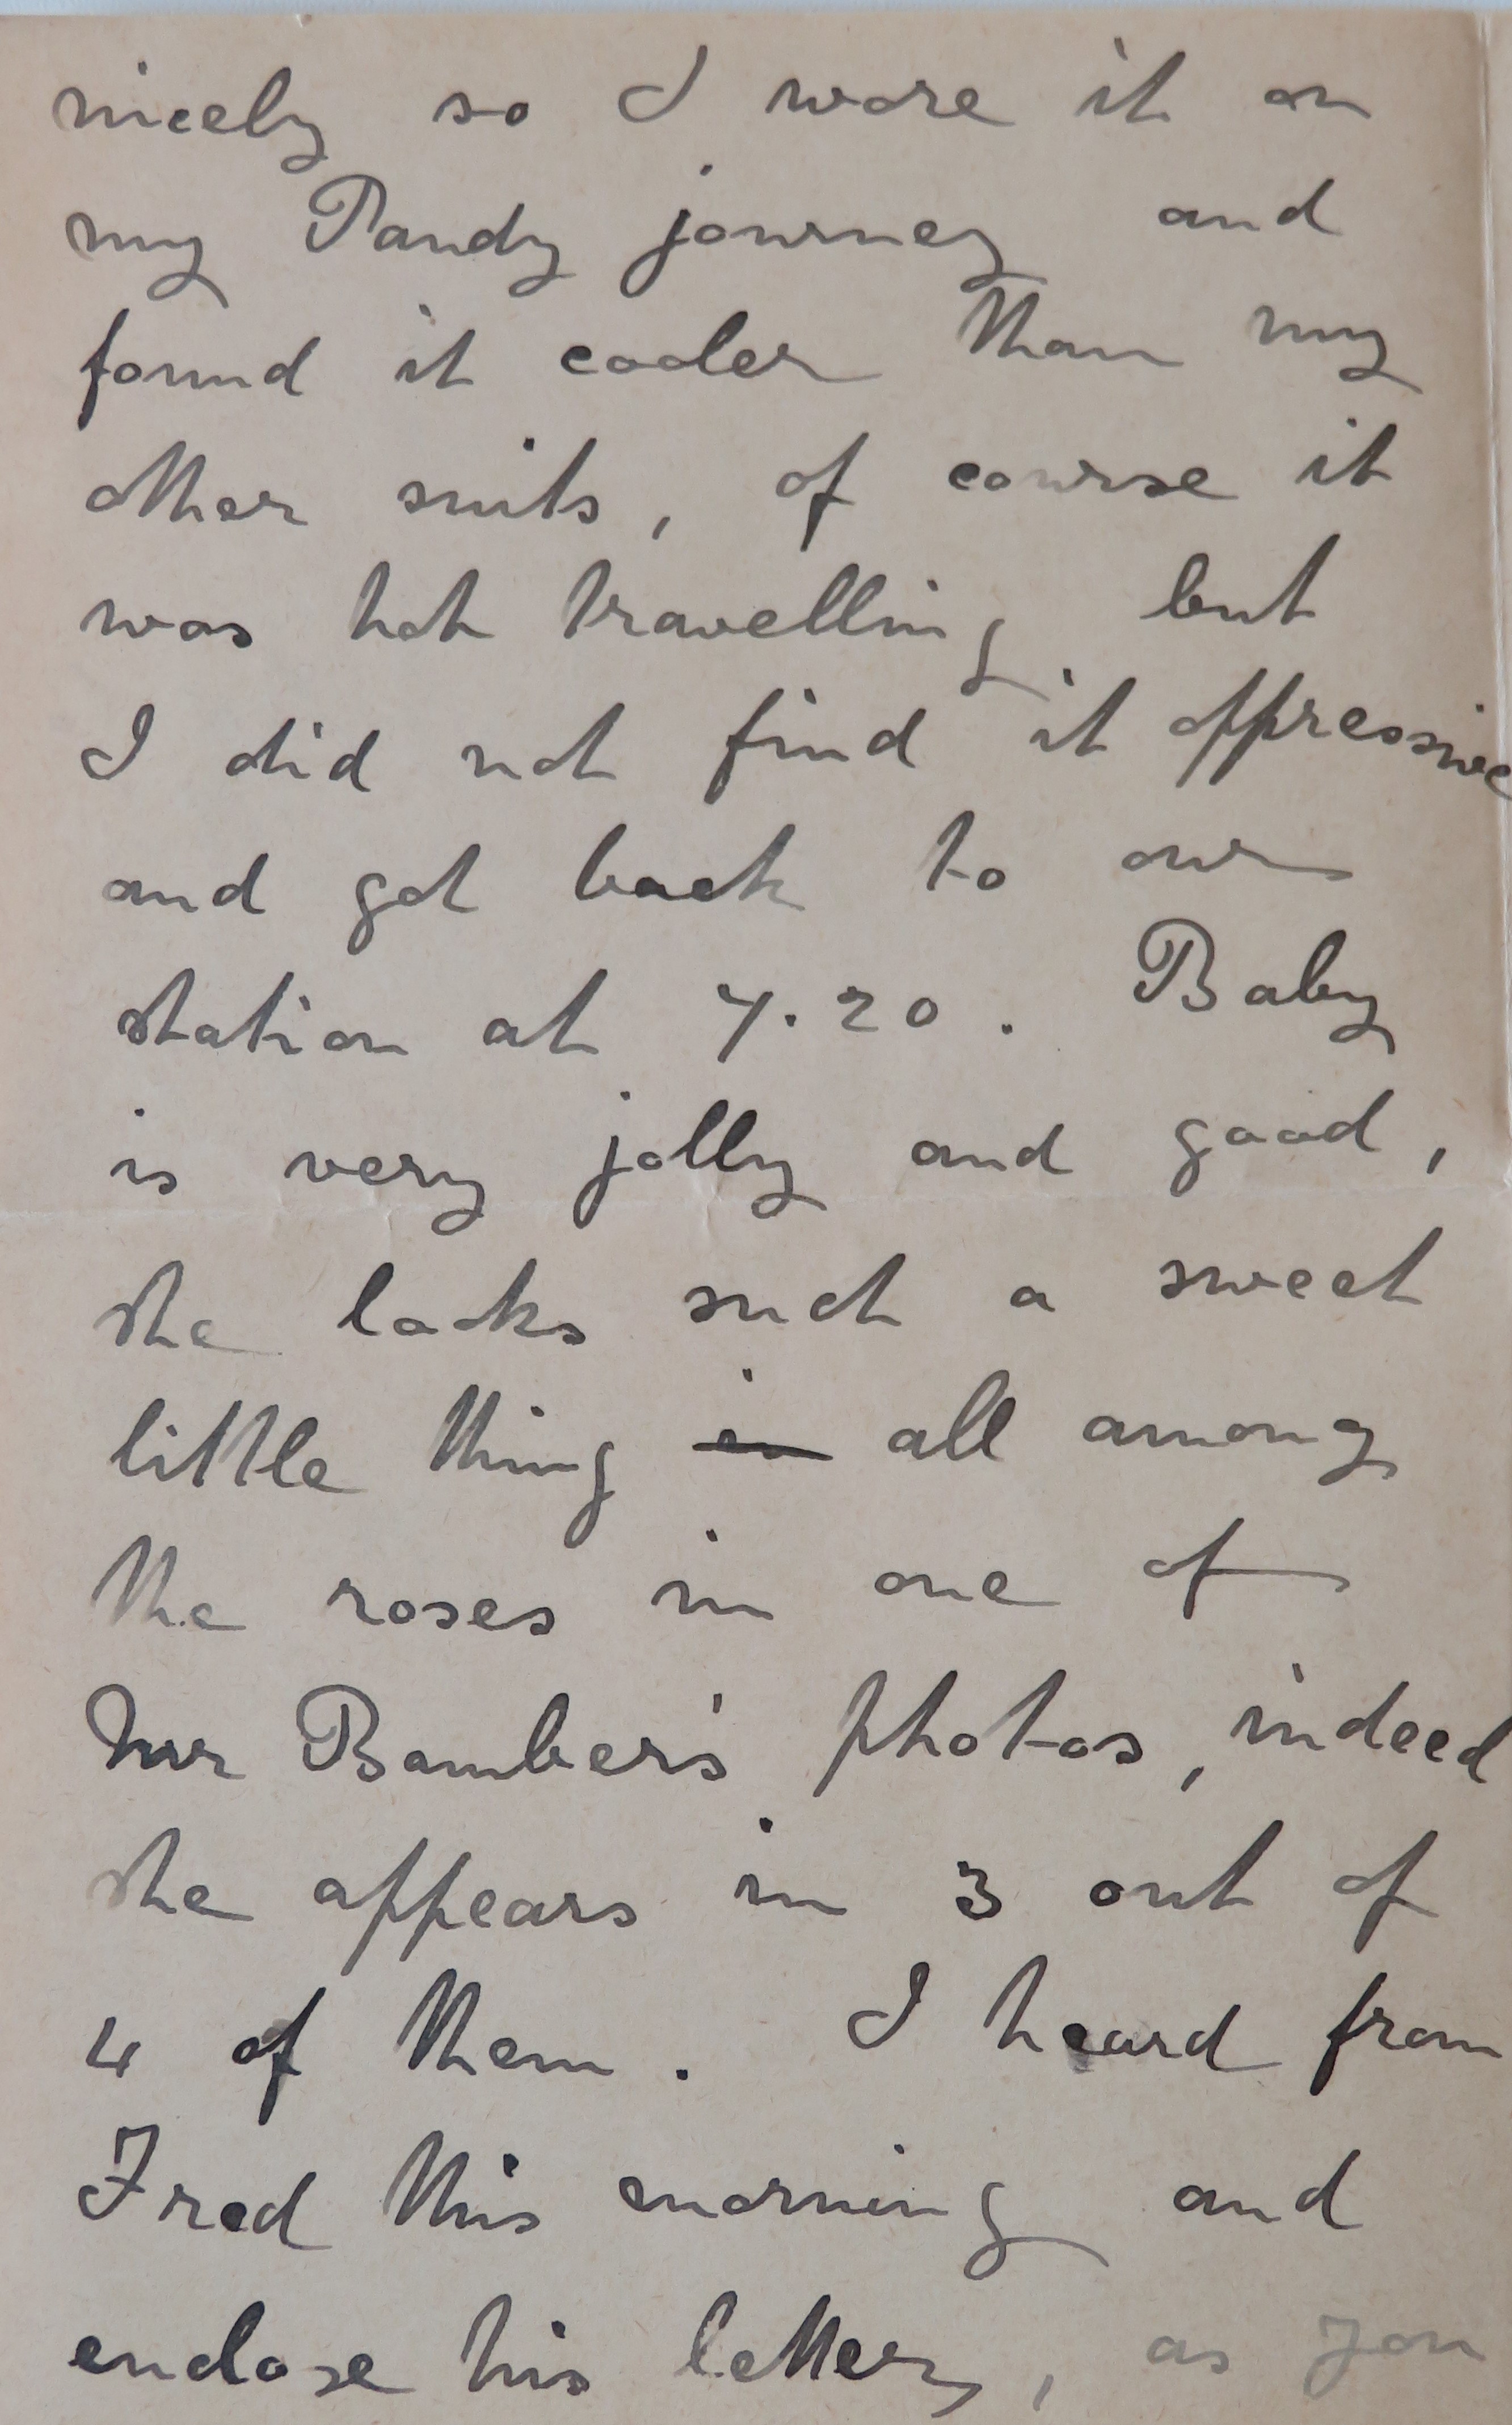 nicely so I wore it on
my Pandy journey and
found it cooler than my
other suits, of course it
was hot travelling but
I did not find it oppressive
and got back to our
station at 7.20. Baby
is very jolly and good,
she looks such a sweet
little thing in all among
the roses in one of
Mr Bamber's photos, indeed
she appears in 3 out of
4 of them. I heard from
Fred this morning and
enclose his letter, as you